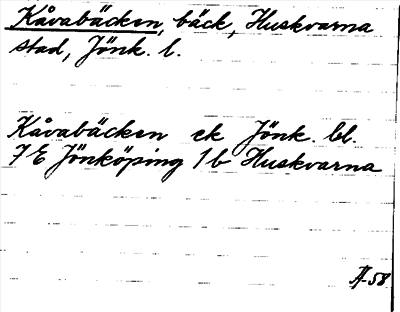 Kåvabäcken, bäck, Huskvarna
stad, Jönk. l.
Kåvabäcken ek Jönk. bl.
7E Jönköping 1b Huskvarna
Ä-58